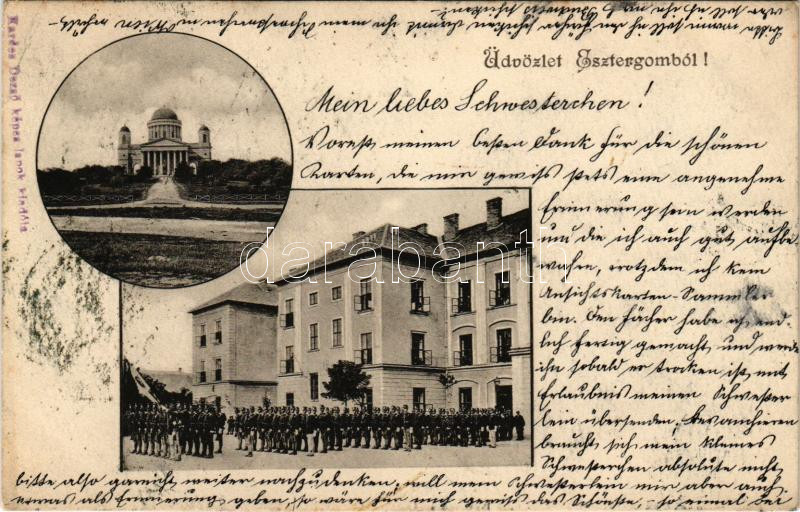 Üdvözlet Esztergomból!
Mein liebes Schwesterchen!
Vorerst meinen besten Dank für die schönen
Karten, die mir gewiss stets eine angenehme
Erinnerung sein werden
und die ich auch gut aufbe-
wahren, trotzdem ich kein
Ansichtskarten-Sammler
bin. Den Fächer habe ich end-
lich fertig gemacht und werde
ihn sobald er trocken ist, mit
Erlaubnis meinen Schwester-
lein übersenden. Revanchieren
braucht sich mein kleines
Schwesterchen absolute nicht,
bitte also garnicht weiter nachzudenken, will mein Schwesterlein mir aber auch
etwas als Erinnerung geben, so wäre für mich gewiss das Schönste, so einmal bei
Kardos Dezső képes lapok kiadója
darabanth